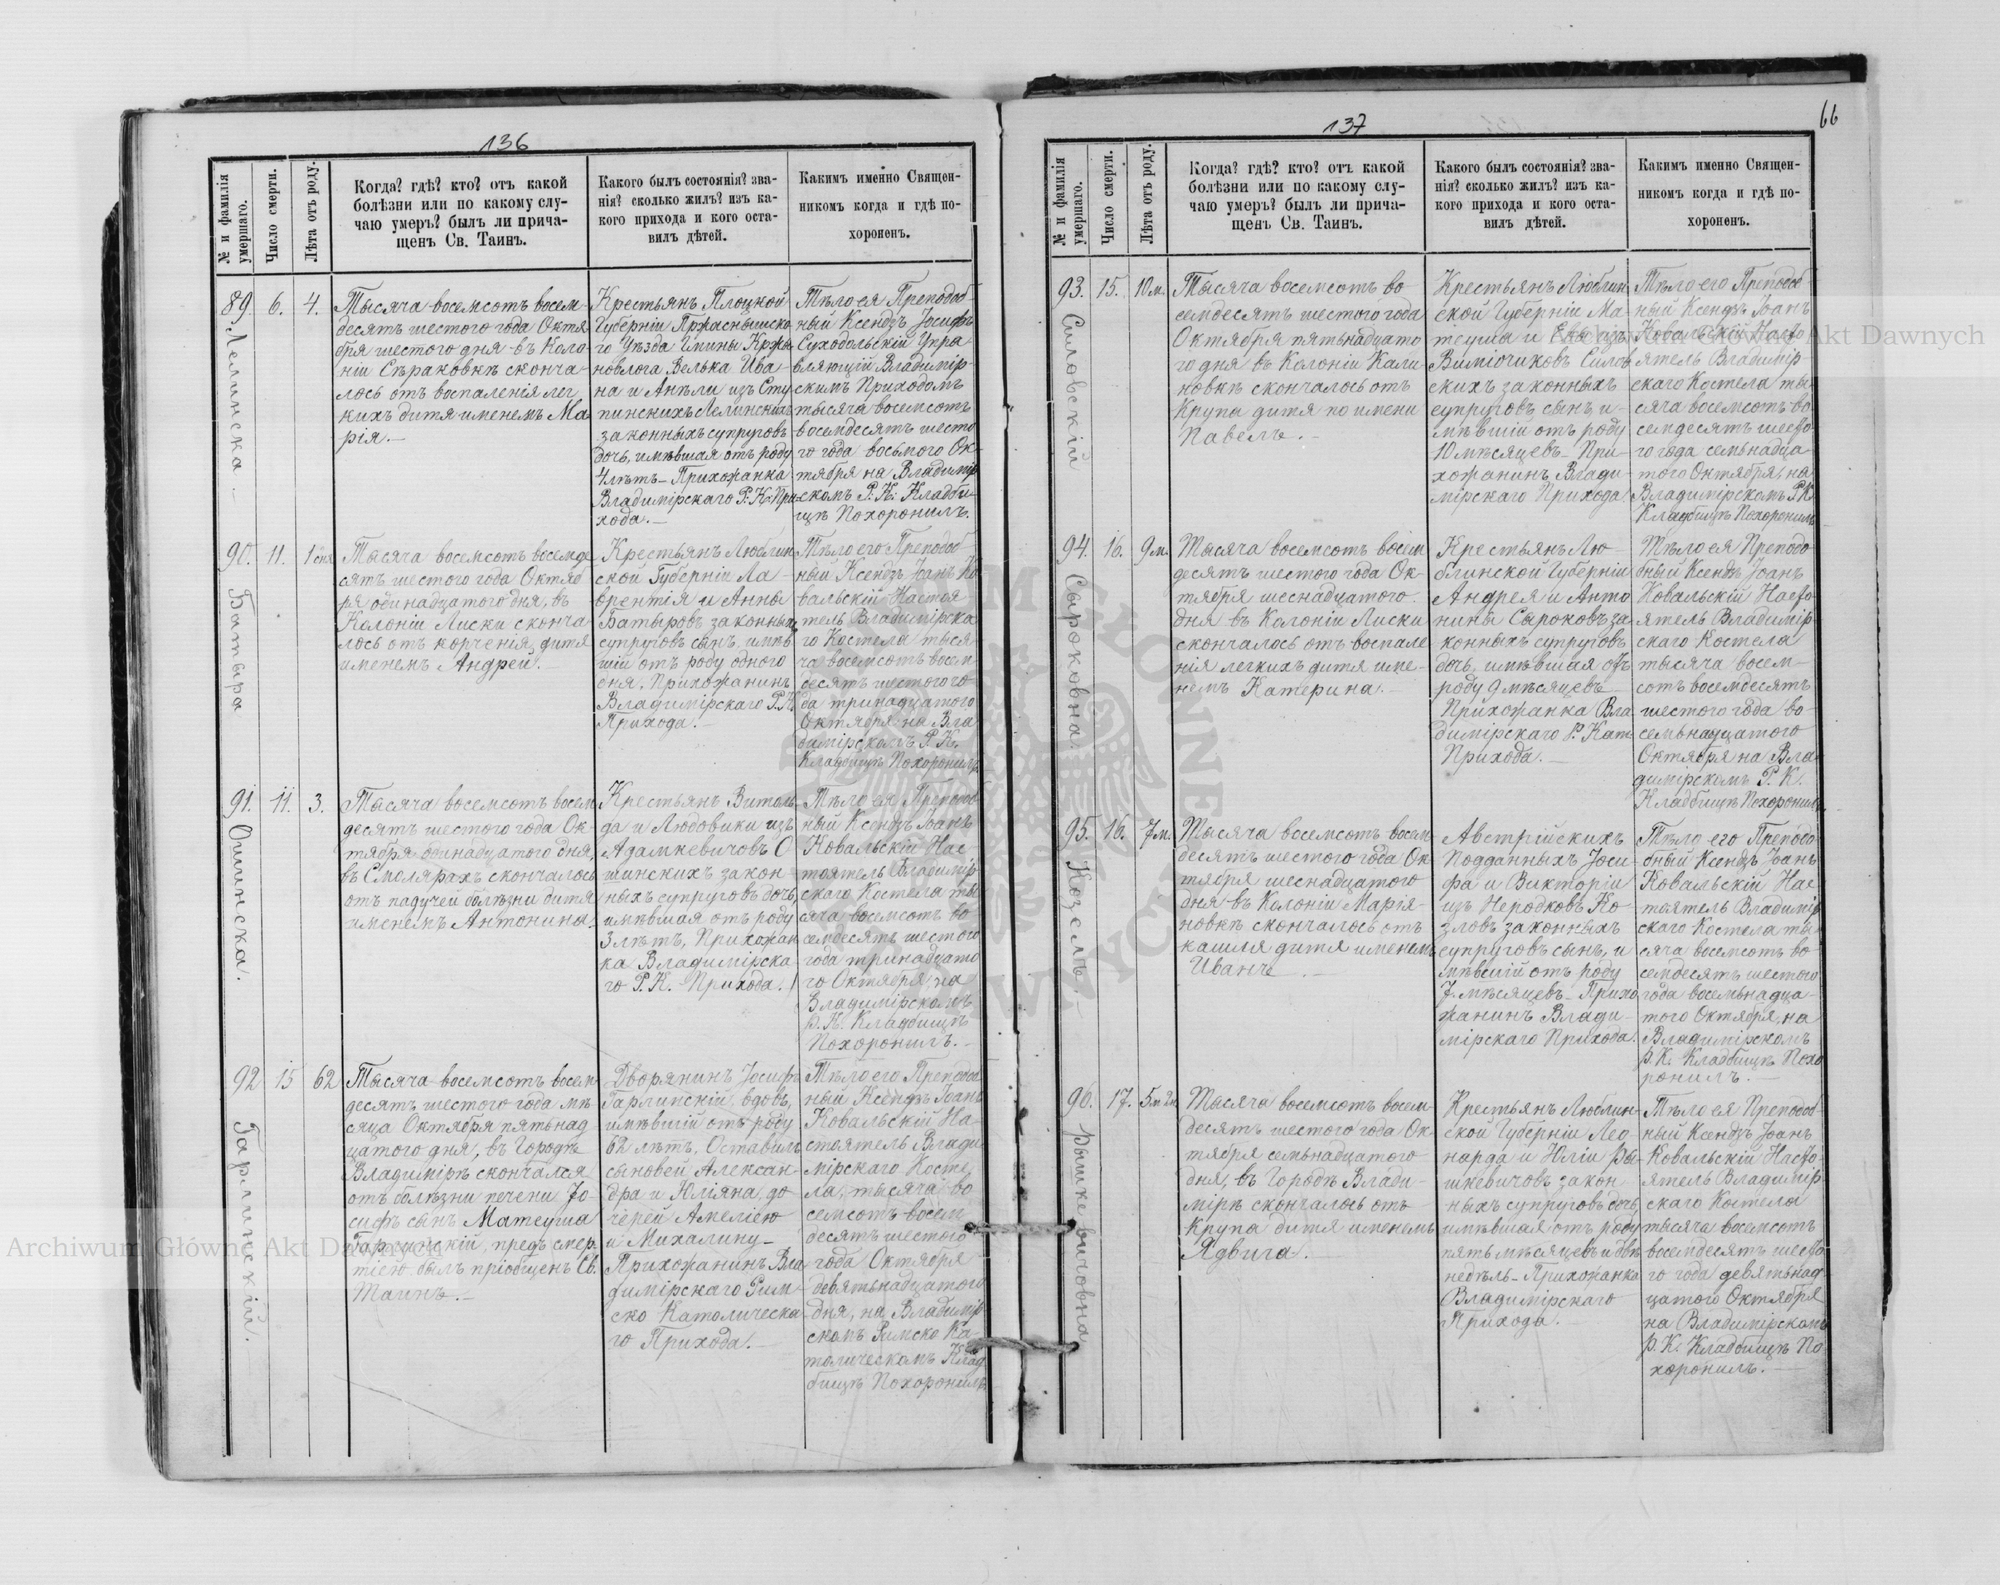 136
№ и фамилія умершаго.
Число смерти.
Лѣта отъ роду.
Когда? гдѣ? кто? отъ какой
болѣзни или по какому слу-
чаю умеръ? былъ ли прича-
щенъ Св. Таинъ.
Какого былъ состоянія? зва-
нія? сколько жилъ? изъ ка-
кого прихода и кого оста-
вилъ дѣтей.
Какимъ именно Священ-
никомъ когда и гдѣ по-
хороненъ.
89. Лелинска.
6.
4.
Тысяча восемсотъ восем-
десятъ шестого года Октя
бря шестого дня въ Коло
ніи Сѣраковкѣ сконча
лось отъ воспаленія лег
кихъ дитя именемъ Ма
рія.
Крестьянъ Плоцкой
Губерніи Пржаснышско
го Уѣзда Гмины Кржы
новлога Велька Ива
на и Анѣли изъ Сту
пинскихъ Лелинскихъ
законныхъ супруговъ
дочь, имѣвшая отъ роду
4 лѣтъ - Прихожанка
Владимірскаго Р. К. При
хода.
Тѣло ея Преподоб-
ный Ксендзъ Іосифъ
Суходольскій Упра-
вляющій Владимір-
скимъ Приходомъ
тысяча восемсотъ
восемдесятъ шесто
го года восьмого Ок-
тября на Владимір
скомъ Р. К. Кладби-
щѣ Похоронилъ.
90. Батыра
11.
1 дня
Тысяча восемсотъ восемде
сятъ шестого года Октяб
ря одинадцатого дня, въ
Колоніи Лиски сконча
лось отъ корченія дитя
именемъ Андрей.
Крестьянъ Люблин
ской Губерніи Ла
врентія и Анны
Батыровъ законныхъ
супруговъ сынъ, имѣв
шій отъ роду одного
дня, Прихожанинъ
Владимірскаго Р. К.
Прихода.
Тѣло его Преподоб
ный Ксендзъ Іоанъ Ко
вальскій Настоя
тель Владимірска
го Костела тыся-
ча восемсотъ восем
десятъ шестого го-
да тринадцатого
Октября на Вла
димірскомъ Р. К.
Кладбищѣ Похоронилъ.
91. Ошинска.
11.
3.
Тысяча восемсотъ восем
десятъ шестого года Ок-
тября одинадцатого дня,
въ Смолярахъ скончалось
отъ падучей болѣзни дитя
именемъ Антонина.
Крестьянъ Витоль-
да и Людовики изъ
Адамкевичовъ О
шинскихъ закон
ныхъ супруговъ дочь,
имѣвшая отъ роду
3 лѣтъ, Прихожан
ка Владимірска-
го Р. К. Прихода.
Тѣло ея Преподоб
ный Ксендзъ Іоанъ
Ковальскій Нас
тоятель Владимір-
скаго Костела ты-
сяча восемсотъ во
семдесятъ шестого
года тринадцато
го Октября, на
Владимірскомъ
Р. К. Кладбищѣ
Похоронилъ.
92 Гарлинскій.
15
62
Тысяча восемсотъ восем
десятъ шестого года мѣ
сяца Октября пятьнад
цатого дня, въ Городѣ
Владимірѣ скончался
отъ болѣзни печени Іо-
сифъ сынъ Матеуша
Гарлинскій, предъ смер-
тіею былъ пріобщенъ Св.
Таинъ.
Дворянинъ Іосифъ
Гарлинскій, вдовъ,
имѣвшій отъ роду
62 лѣтъ. Оставилъ
сыновей Алексан-
дра и Юліяна, до
черей Амелію
и Михалину -
Прихожанинъ Вла
димірскаго Рим-
ско Католическа
го Прихода.
Тѣло его Преподоб
ный Ксендзъ Іоанъ
Ковальскій На-
стоятель Влади-
мірскаго Косте-
ла, тысяча во
семсотъ восем
десятъ шестого
года Октября
девятьнадцатого
дня, на Владимір
скомъ Римско Ка-
толическомъ Клад
бищѣ Похоронилъ.
137
66
№ и фамилія умершаго.
Число смерти.
Лѣта отъ роду.
Когда? гдѣ? кто? отъ какой
болѣзни или по какому слу-
чаю умеръ? былъ ли прича-
щенъ Св. Таинъ.
Какого былъ состоянія? зва-
нія? сколько жилъ? изъ ка-
кого прихода и кого оста-
вилъ дѣтей.
Какимъ именно Священ-
никомъ когда и гдѣ по-
хороненъ.
93. Силовскій
15.
10 м.
Тысяча восемсотъ во
семдесятъ шестого года
Октября пятьнадцато
го дня въ Колоніи Кали
новкѣ скончалось отъ
Крупа дитя по имени
Павелъ.
Крестьянъ Люблин
ской Губерніи Ма-
теуша и Евы изъ
Силов
скихъ законныхъ
супруговъ сынъ, и-
мѣвшій отъ роду
10 мѣсяцевъ - При-
хожанинъ Влади-
мірскаго Прихода
Тѣло его Преподоб
ный Ксендзъ Іоанъ
Ковальскій Насто
ятель Владимір-
скаго Костела ты-
сяча восемсотъ во
семдесятъ шесто
го года семьнадца
того Октября, на
Владимірскомъ Р. К.
Кладбищѣ Похоронилъ
94. Сыроковна.
16.
9 м.
Тысяча восемсотъ восем
десятъ шестого года Ок-
тября шеснадцатого
дня въ Колоніи Лиски
скончалось отъ воспале
нія легкихъ дитя име-
немъ Катерина.
Крестьянъ Лю-
блинской Губерніи
Андрея и Анто
нины Сыроковъ за
конныхъ супруговъ
дочь, имѣвшая отъ
роду 9 мѣсяцевъ
Прихожанка Вла
димірскаго Р. Кат
Прихода.
Тѣло ея Преподо
бный Ксендзъ Іоанъ
Ковальскій Насто
ятель Владимір
скаго Костела
тысяча восем-
сотъ восемдесятъ
шестого года во-
семьнадцатого
Октября на Вла-
димірскомъ Р. К.
Кладбищѣ Похоронилъ.
95. Козелъ
16.
7 м.
Тысяча восемсотъ восем
десятъ шестого года Ок
тября шеснадцатого
дня въ Колоніи Марія-
новкѣ скончалось отъ
кашля дитя именемъ
Иванъ.
Австрійскихъ
Подданныхъ Іоси-
фа и Викторіи
изъ Неродковъ Ко-
зловъ законныхъ
супруговъ сынъ, и
мѣвшій отъ роду
7 мѣсяцевъ - Прихо
жанинъ Влади-
мірскаго Прихода.
Тѣло его Преподо
бный Ксендзъ Іоанъ
Ковальскій Нас-
тоятель Владимір
скаго Костела ты
сяча восемсотъ во
семдесятъ шестого
года восемьнадца-
того Октября, на
Владимірскомъ
Р. К. Кладбищѣ Похо
ронилъ.
96. Рышкевичовна
17.
5 м 2 н
Тысяча восемсотъ восем-
десятъ шестого года Ок-
тября семьнадцатого
дня, въ Городѣ Влади-
мірѣ скончалось отъ
Крупа дитя именемъ
Ядвига.
Крестьянъ Люблин-
ской Губерніи Лео-
нарда и Юліи Ры-
шкевичовъ закон
ныхъ супруговъ дочь,
имѣвшая отъ роду
пять мѣсяцевъ и двѣ
недѣль - Прихожанка
Владимірскаго
Прихода.
Тѣло ея Преподоб-
ный Ксендзъ Іоанъ
Ковальскій Насто-
ятель Владимір-
скаго Костела
тысяча восемсотъ
восемдесятъ шесто
го года девятьнад-
цатого Октября
на Владимірскомъ
Р. К. Кладбищѣ По
хоронилъ.
Archiwum Główne Akt Dawnych
Archiwum Główne Akt Dawnych